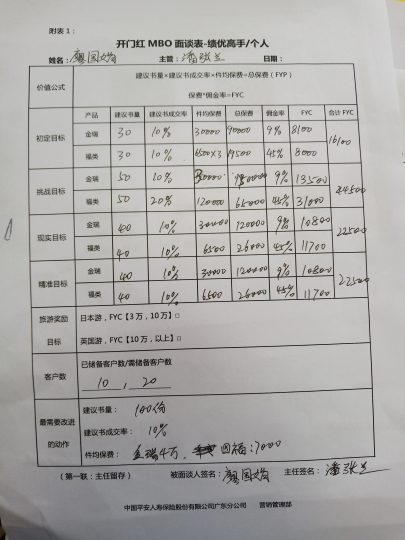 附表 1：
开门红 MBO 面谈表-绩优高手/个人
姓名：廖国娟 主管：潘张兰 日期：
价值公式 建议书量×建议书成交率×件均保费=总保费（FYP）
保费*佣金率=FYC
产品 建议书量 建议书成交率 件均保费 总保费 佣金率 FYC 合计 FYC
初定目标 金瑞 30 10% 30000 90000 9% 8100 16100
福类 30 10% 6500×3 19500 45% 8000
挑战目标 金瑞 50 10% 30000 150000 9% 13500 44500
福类 50 20% 120000 66000 45% 31000
现实目标 金瑞 40 10% 30000 120000 9% 10800 22500
福类 40 10% 6500 26000 45% 11700
精准目标 金瑞 40 10% 30000 120000 9% 10800 22500
福类 40 10% 6500 26000 45% 11700
旅游奖励 日本游，FYC【3 万，10 万】□
目标 英国游，FYC【10 万，以上】□
客户数 已储备客户数/需储备客户数
10 , 20
最需要改进的动作 建议书量： 100份
建议书成交率： 10%
件均保费： 金瑞4万， 福：7000
（第一联：主任留存） 被面谈人签名：廖国娟 主任签名：潘张兰
中国平安人寿保险股份有限公司广东分公司 营销管理部